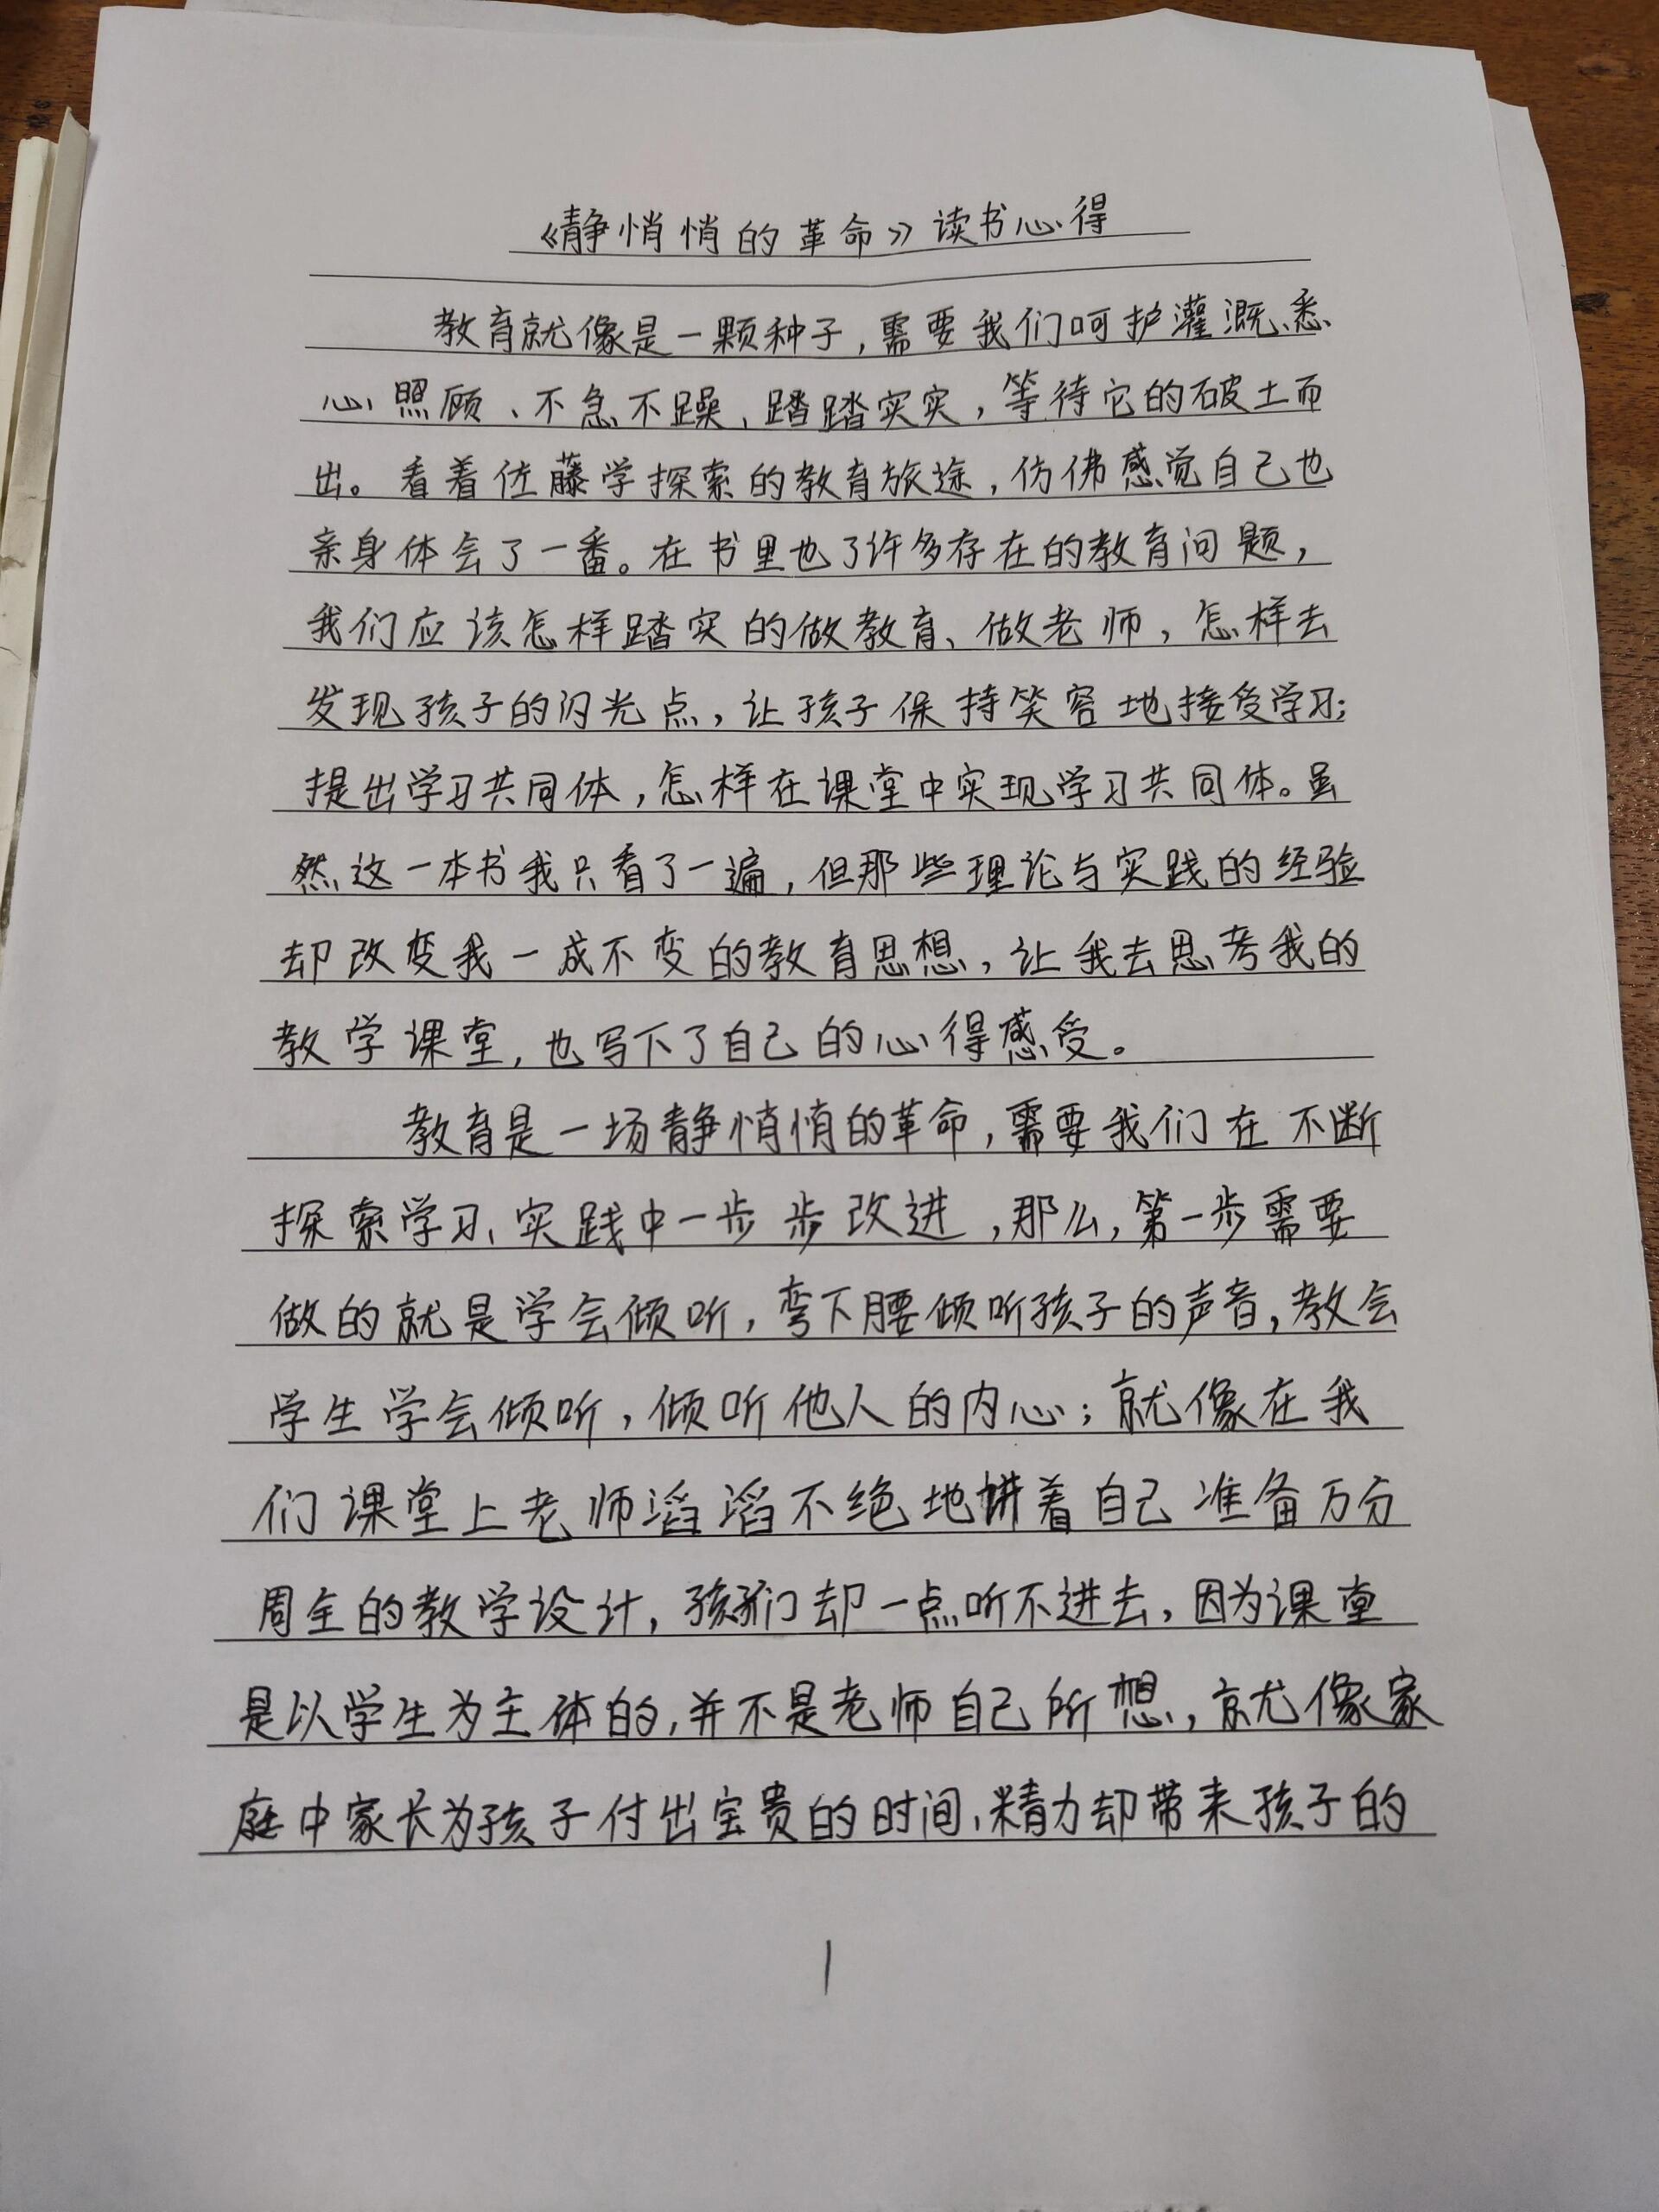 《静悄悄的革命》读书心得
教育就像是一颗种子，需要我们呵护灌溉、悉
心照顾、不急不躁、踏踏实实，等待它的破土而
出。看着佐藤学探索的教育旅途，仿佛感觉自己也
亲身体会了一番。在书里也了许多存在的教育问题，
我们应该怎样踏实的做教育、做老师，怎样去
发现孩子的闪光点，让孩子保持笑容地接受学习；
提出学习共同体，怎样在课堂中实现学习共同体。虽
然这一本书我只看了一遍，但那些理论与实践的经验
却改变我一成不变的教育思想，让我去思考我的
教学课堂，也写下了自己的心得感受。
教育是一场静悄悄的革命，需要我们在不断
探索学习、实践中一步步改进，那么，第一步需要
做的就是学会倾听，弯下腰倾听孩子的声音，教会
学生学会倾听，倾听他人的内心；就像在我
们课堂上老师滔滔不绝地讲着自己准备万分
周全的教学设计，孩子们却一点听不进去，因为课堂
是以学生为主体的，并不是老师自己所想，就像家
庭中家长为孩子付出宝贵的时间、精力却带来孩子的
1